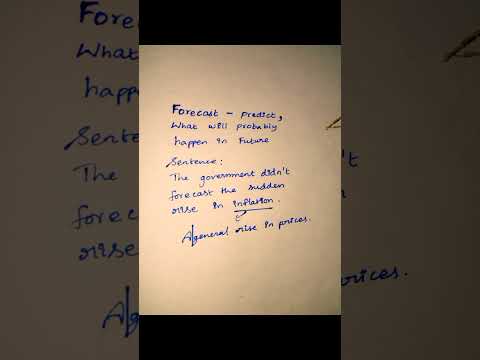 Forecast - predict,
What will probably
happen in Future
Sentence:
The government didn't
forecast the sudden
rise in inflation.
A general rise in prices.